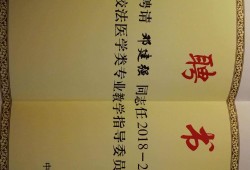 聘书
聘请 邓建强 同志任2018-2
校法医学类专业教学指导委员
中